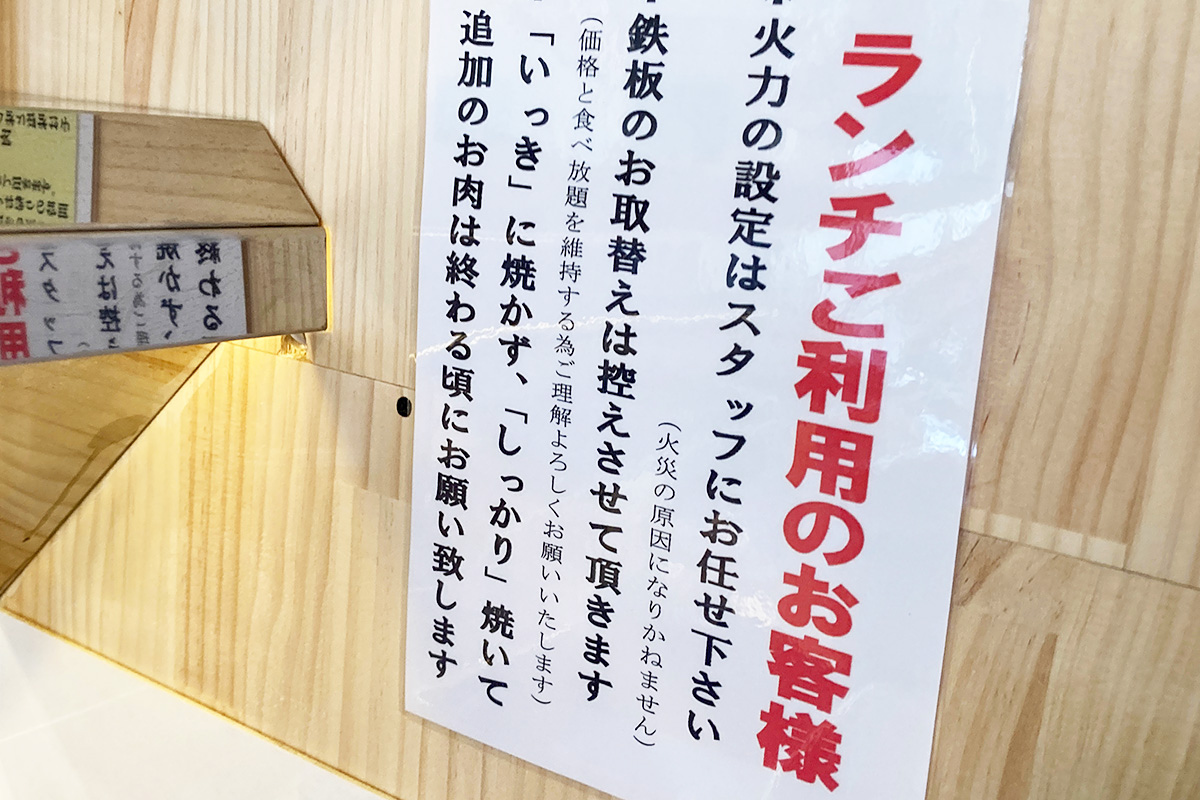 ランチご利用のお客様
火力の設定はスタッフにお任せ下さい
(火災の原因になりかねません)
鉄板のお取替えは控えさせて頂きます
(価格と食べ放題を維持する為ご理解よろしくお願いいたします)
「いっき」に焼かず、「しっかり」焼いて
追加のお肉は終わる頃にお願い致します